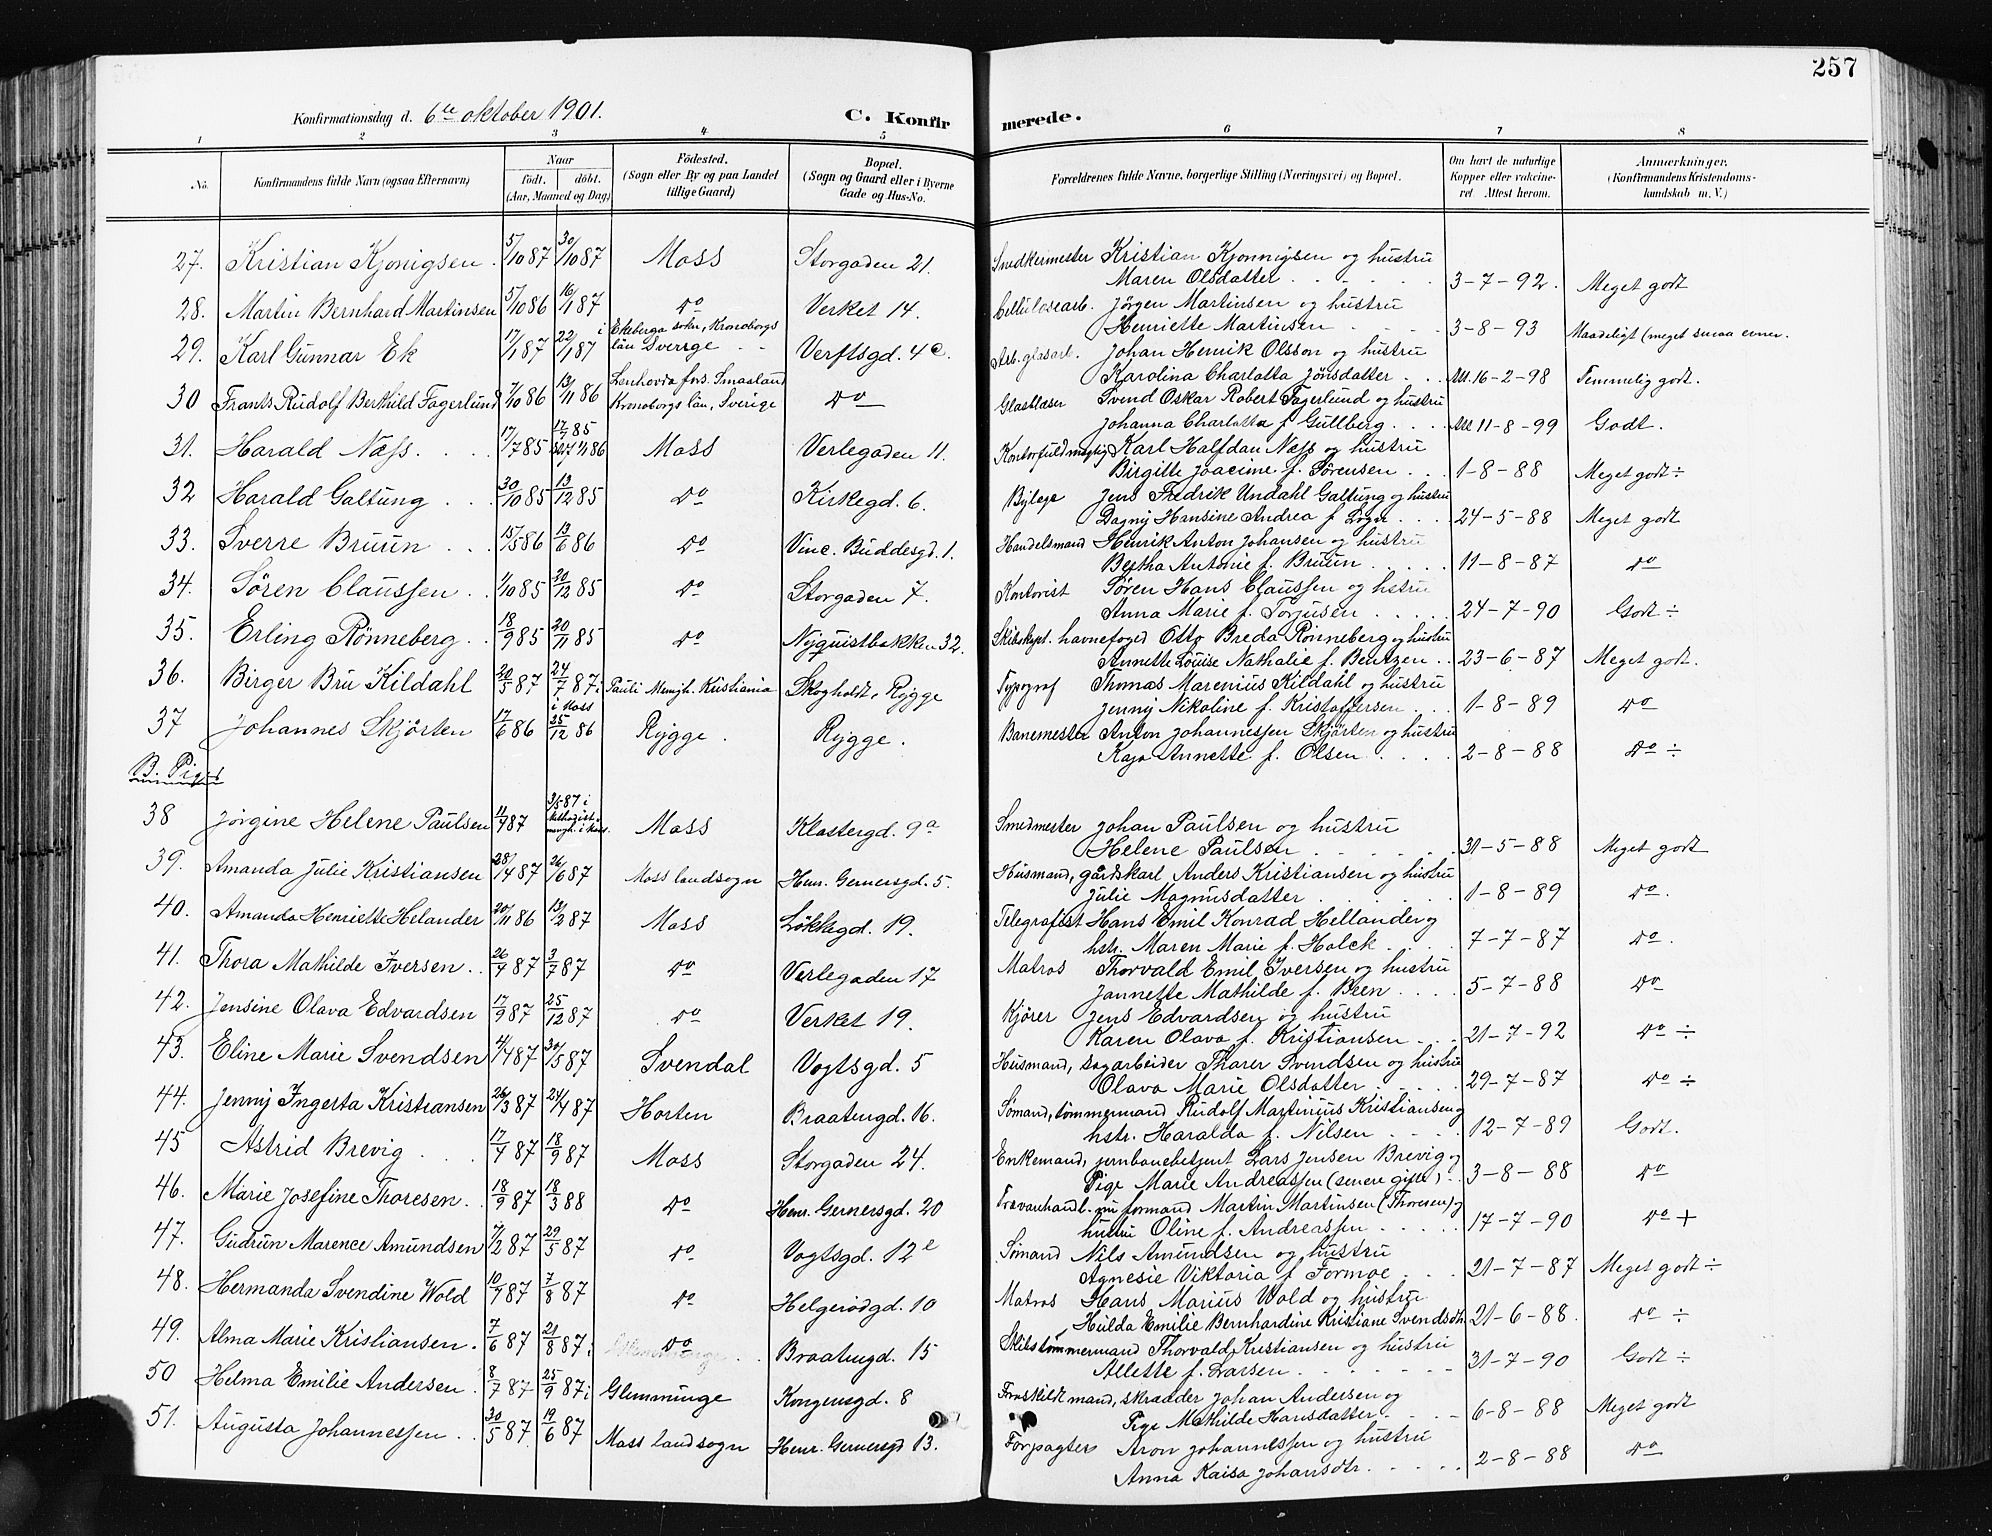 257
Konfirmationsdag d. 6te oktober 1901.
C. Konfirmerede.
1 2 3 4 5 6 7 8
No.
Konfirmandens fulde Navn (ogsaa Efternavn)
Naar
født. døbt.
(Aar, Maaned og Dag)
Fødested.
(Sogn eller By og paa Landet
tillige Gaard)
Bopæl.
(Sogn og Gaard eller i Byerne
Gade og Hus-No.
Forældrenes fulde Navne, borgerlige Stilling (Næringsvei) og Bopæl.
Om havt de naturlige
Kopper eller vakcine-
ret. Attest herom.
Anmærkninger.
(Konfirmandens Kristendoms-
kundskab m. V.)
27. Kristian Kjonigsen. 5/10 87 30/10 87 Moss Storgaden 21. Snedkermester Kristian Kjonnigsen og hustru
Maren Olsdatter 3-7-92. Meget godt
28. Martin Bernhard Martinsen 5/10 86 16/1 87 Do Verket 14. Cellulosearb. Jørgen Martinsen og hustru
Henriette Martinsen 3-8-93 Maadeligt (meget smaa evner.
29. Karl Gunnar Ek 17/1 87 22/1 87 i Ekeberga sokn, Kronobergs
län Sverrge Verftsgd. 4c. Arb. glasarb. Johan Henrik Olsson og hustru
Karolina Charlotta Jönsdatter Att. 16-2-98 Temmelig godt.
30 Frants Rudolf Berthild Fagerlund 7/10 86 13/11 86 Lenhovda førs. Smaaland
Kronoborgs län, Sverige Do Glasblæser Svend Oskar Robert Fagerlund og hustru
Johanna Charlotta f Gullberg Att 11-8-99 Godt.
31. Harald Næss. 17/7 85 Moss Verlegaden 11. Kontorfuldmægtig Karl Halfdan Næss og hustru
Birgitte Joacime f. Sørensen 1-8-88 Meget godt ÷
32 Harald Galtung 30/10 85 13/12 85 Do Kirkegd. 6. Bylæge Jens Fredrik Undahl Galtung og hustru
Dagny Hansine Andrea f. 24-5-88 Meget godt
33. Sverre Bruun 15/5 86 13/6 86 Do Vinc. Buddesgd. 1. Handelsmand Henrik Anton Johansen og hustru
Bertha Antonie f. Bruun 11-8-87 Do
34. Søren Claussen 1/10 85 20/12 85 Do Storgaden 7. Kontorist Søren Hans Claussen og hstru
Anna Marie f. Torjusen 24-7-90 Godt ÷
35. Erling Rønneberg 18/9 85 20/11 85 Do Nyquistbakken 32. Skibskapt. havnefoged Otto Breda Rønneberg og hustru
Annette Louise Nathalie f. Bentzen 23-6-87 Meget godt.
36. Birger Bru Kildahl 20/5 87 24/7 87 i Pauli Menigh. Kristiania Skogholdt, Rygge Typograf Thomas Marenius Kildahl og hustru
Jenny Nikoline f. Kristoffersen 1-8-89 Do
37 Johannes Skjørten 17/6 86 i Moss 25/12 86 Rygge Rygge. Banemester Anton Johannessen Skjørten og hustru
Kaja Annette f. Olsen 2-8-88 Do ÷
B. Piger
38 Jørgine Helene Paulsen 11/4 87 3/5 87 i Methodist-
mengh. i Moss. Moss Klostergd. 9a Smedmester Johan Paulsen og hustru
Helene Paulsen 31-5-88 Meget godt
39. Amanda Julie Kristiansen 28/4 87 26/6 87 Moss landsogn Henr. Gernersgd. 5. Husmand, gårdskarl Anders Kristiansen og hustru
Julie Magnusdatter 1-8-89 Do.
40. Amanda Henriette Helander 20/11 86 13/2 87 Moss Løkkegd. 19. Telegrafist Hans Emil Konrad Hellander og
hstr. Maren Marie f. Holck 7-7-87 Do.
41. Thora Mathilde Iversen 26/4 87 3/7 87 Do Verlegaden 17 Matros Thorvald Emil Iversen og hustru
Jannette Mathilde f. Been 5-7-88 Do
42. Jensine Olava Edvardsen 17/9 87 25/12 87 Do Verket 19. Kjører Jens Edvardsen og hustru
Karen Olava f. Kristiansen 21-7-92 Do ÷
43. Eline Marie Svendsen 4/4 87 30/5 87 Svendal Vogtsgd. 5 Husmand, sagarbeider Tharer Svendsen og hustru
Olava Marie Olsdatter 29-7-87 Do ÷
44. Jenny Ingerta Kristiansen 26/3 87 24/4 87 Horten Braatengd. 16. Sømand, tømmermand Rudolf Martinius Kristiansen og
hstr. Haralda f. Nilsen 12-7-89 Godt.
45 Astrid Brevig 17/4 87 18/9 87 Moss Storgaden 24. Enkemand, jernbanebetjent Lars Jensen Brevig og
Pige Marie Andreassen (senere gifte) 3-8-88 Do
46. Marie Josefine Thoresen 18/9 87 18/3 88 Do Henr. Gernersgd. 20 Trævarehandl. nu formand Martin Martinsen (Thoresen) og
hustru Oline f. Andreassen 17-7-90 Do +
47. Gudrun Marence Amundsen 7/2 87 29/5 87 Do Vogtsgd. 12e Sømand Nils Amundsen og hustru
Agnesie Viktoria f Formoe 21-7-87 Meget godt ÷
48. Hermanda Svendine Wold 10/4 87 7/8 87 Do Helgerødgd. 10 Matros Hans Marius Wold og hustru
Hulda Emilie Bernhardine Kristiane Svendsdtr. 21-6-88. Do ÷
49. Alma Marie Kristiansen. 7/6 87 21/8 87 Do Braatengd. 15 Skibstømmermand Thorvald Kristiansen og hustru
Allette f. Larsen 31-7-90 Godt ÷
50 Helma Emilie Andersen 8/7 87 25/9 87 i Glemminge Kongensgd. 8 Fraskildt mand, skrædder Johan Andersen og
Pige Mathilde Hansdatter 6-8-88 Meget godt
51. Augusta Johannessen 30/5 87 19/6 87 Moss landsogn Henr. Gernersgd 13. Forpagter Aron Johannessen og hustru
Anna Kaisa Johansdtr. 2-8-88 Do